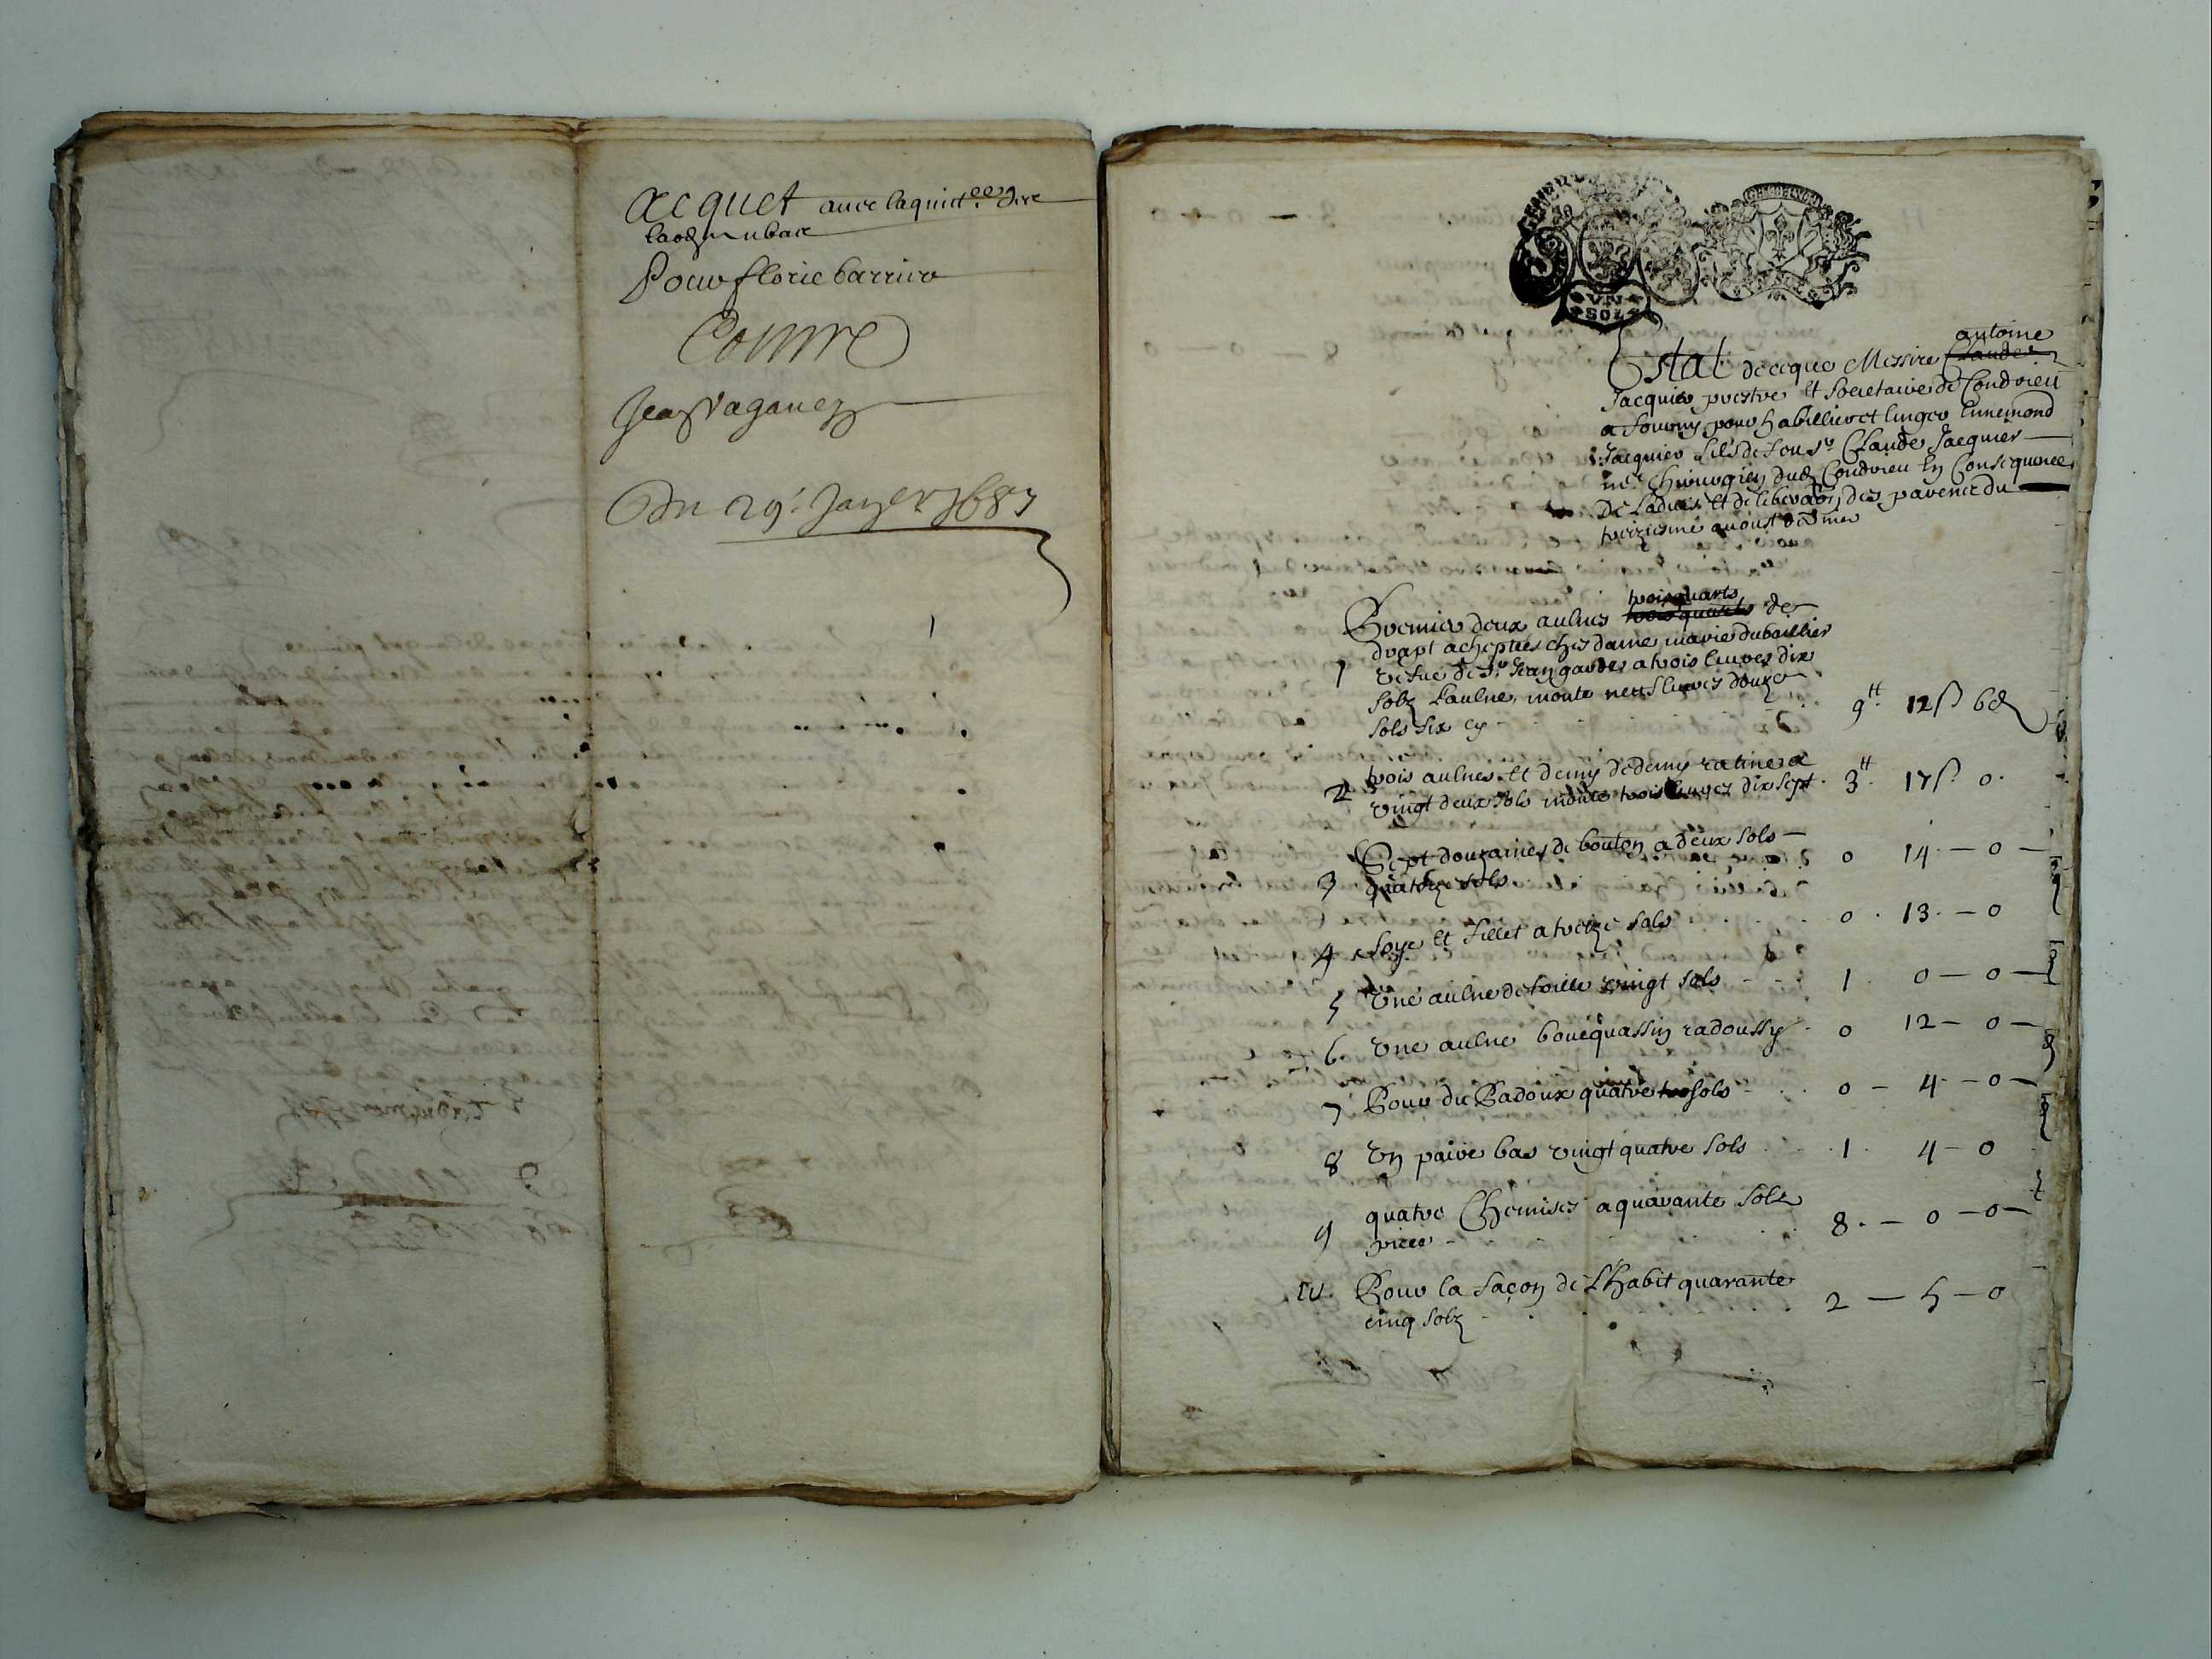 acquet avec laquict.ee
Pour florie barriere
Contre
Jean Vaganey
Du 29e Janvr 1687
UN
SOL
antoine
Estat de ce que Messire Claude
Jacquier prestre et secretaire de Condrieu
a fourny pour habillier et linger Ennemond
Jacquier fils de feu Sr Claude Jacquier
me Chirurgien dud Condrieu en Consequence
De Ladvis et deliberaõn des parents du
treiziesme aoust dernier
trois quarts
Premier deux aulnes trois quarts de
1 drapt acheptées chés dame marie duballier
vefve de Sr Jean gardes a trois livres dix
solz L'aulne, monte neuf livres douze
sols six cy 9tt 12ſ 6d
2 trois aulnes et demy de demy ratine a
vingt deux sols monte trois livres dix sept 3tt 17ſ 0
Sept douzaines de bouton a deux sols
3 quatorze sols 0 14 - 0 -
4 soye et fillet a treize sols 0 13 - 0
5 Une aulne de toille vingt sols 1 0 - 0 -
6 Une aulne bouequassin radoussy 0 12 - 0 -
7 Pour du Padoux quatre sols 0 - 4 - 0 -
8 Un paire bas vingt quatre sols 1 4 - 0
9 quatre Chemises a quarante solz
piece 8 - 0 - 0 -
10 Pour la façon de L'habit quarante
cinq solz 2 - 5 - 0